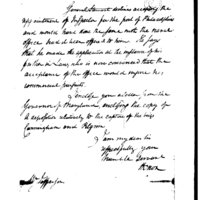 General Stewart declines accepting the
appointment of Inspector for the port of Philadelphia
and would have done the same with the naval
office had it been offered to him. He says
that he made the application at the instance of
in Law, who is now convinced that the
acceptance of the office would injure his
commercial pursuits.
I enclose you a letter from the
Governor of Maryland, enclosing the copy of
a deposition relatively to the capture of the brigs
Cunningham and Pilgrim.
I am my dear sir
respectfully your
humble servant
Knox
Mr Jefferson